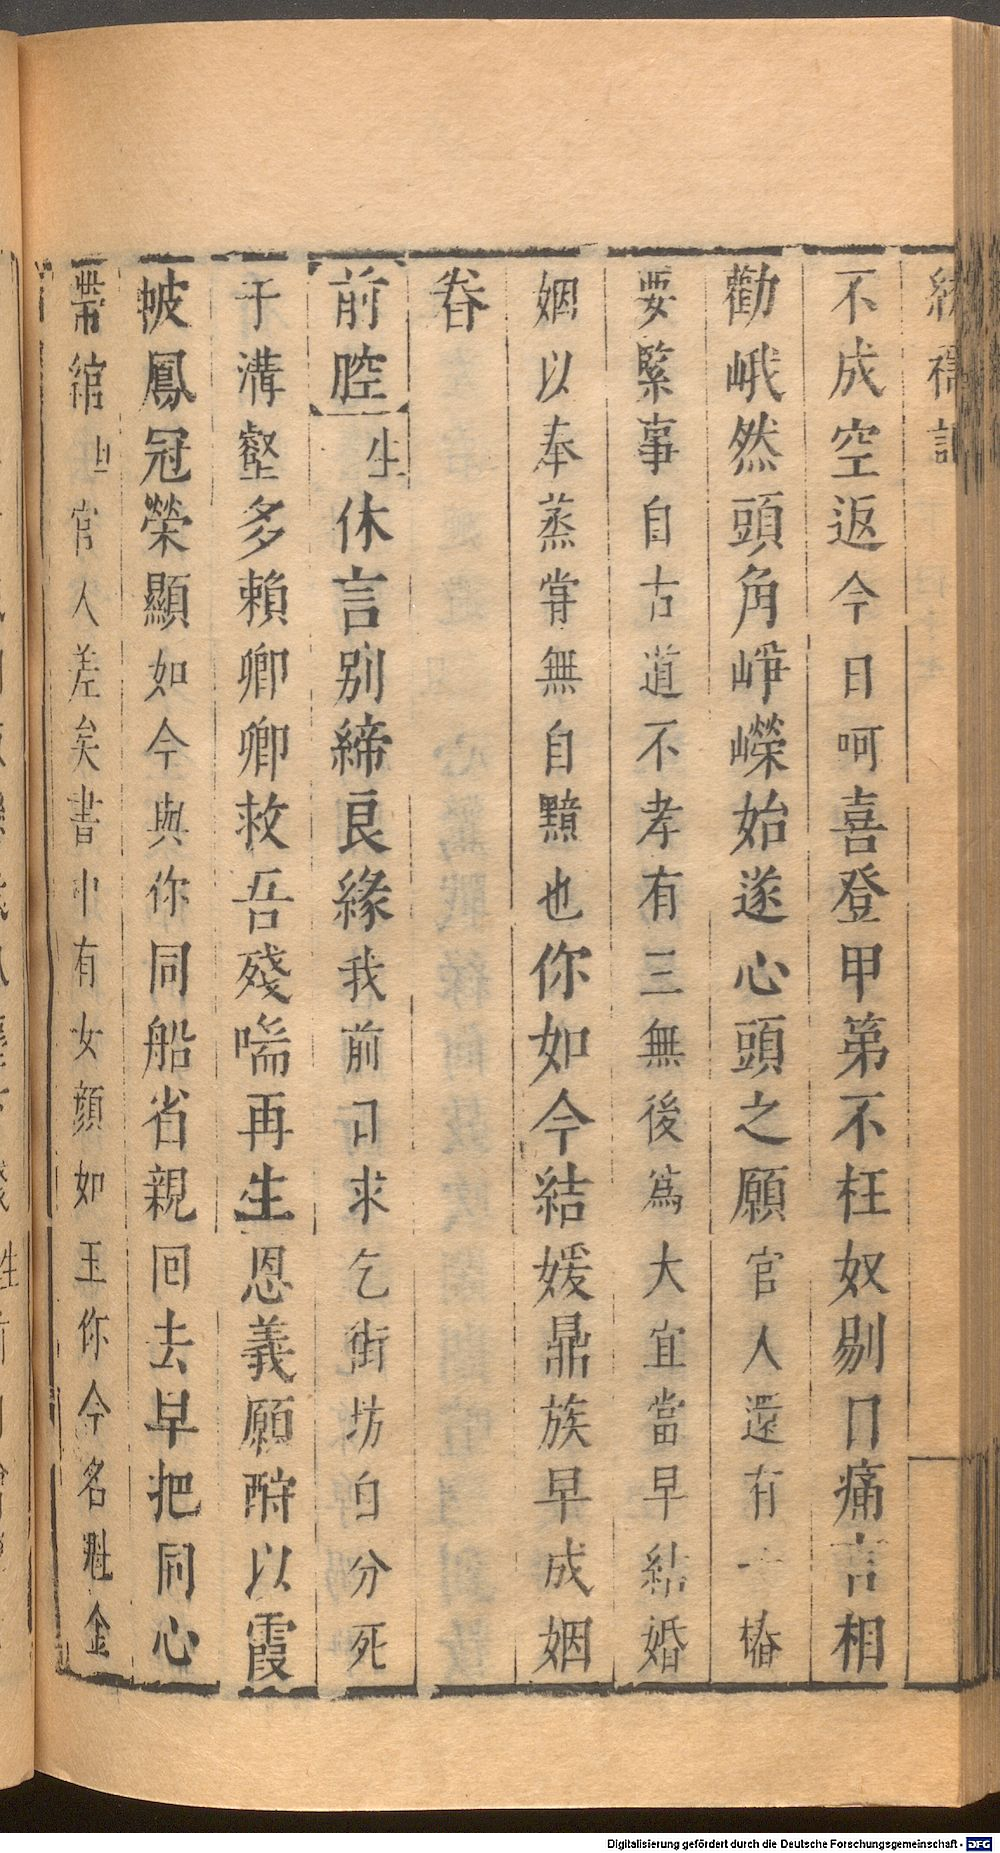 繡襦記
不成空返今日呵喜登甲第不枉奴剔口痛言相
勸峨然頭角崢嶸始遂心頭之願官人還有一樁
要緊事自古道不孝有三無後爲大宜當早結婚
姻以奉蒸甞無自黷也你如今結媛鼎族早成姻
眷
前腔 生休言別締良緣我前日求乞街坊自分死
于溝壑多賴卿卿救吾殘喘再生恩義願酧以霞
帔鳳冠榮顯如今與你同船省親回去早把同心
帶綰 旦官人差矣書中有女顔如玉你今名魁金
Digitalisierung gefördert durch die Deutsche Forschungsgemeinschaft - DFG